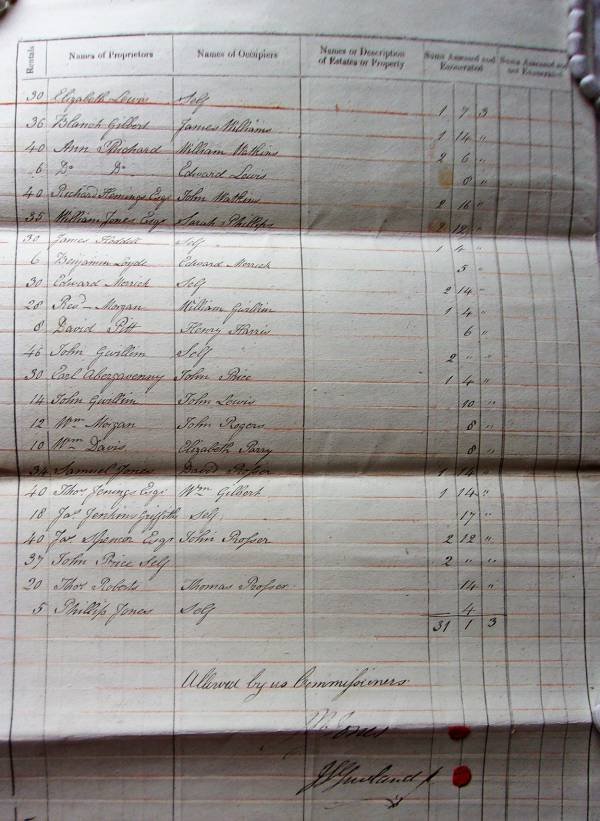 Rentals Names of Proprietors Names of Occupiers Names or Description of Estates or Property Sums Assessed and Exonerated Sums Assessed and not Exonerated
30 Elizabeth Lewis Self 1 7 3
36 Blanch Gilbert James Williams 1 14 "
40 Ann Prichard William Watkins 2 6 "
6 Do Do Edward Lewis 8 "
40 Richard Hemings Esqr John Watkins 2 16 "
35 William Jones Esqr Sarah Phillips 2 12 "
30 James Self 1 4 "
6 Benjamin Loyde Edward Merrick 5 "
30 Edward Merrick Self 2 14 "
28 Revd - Morgan William Gwillim 1 4 "
8 David Pitt Henry Harris 6 "
46 John Gwillim Self 2 " "
30 Earl Abergavenny John Price 1 4 "
14 John Gwillim John Lewis 10 "
12 Wm Morgan John Rogers 8 "
10 Wm Davis Elizabeth Parry 8 "
34 Samuel Jones David Prosser 1 14 "
40 Thos Jenings Esqr Wm Gilbert 1 14 "
18 Jas Jenkins Griffiths Self 17 "
40 Jas Spencer Esqr John Prosser 2 12 "
37 John Price Self 2 " "
20 Thos Roberts Thomas Prosser 14 "
5 Phillip Jones Self 4
31 1 3
Allowed by us Commissioners
Jones